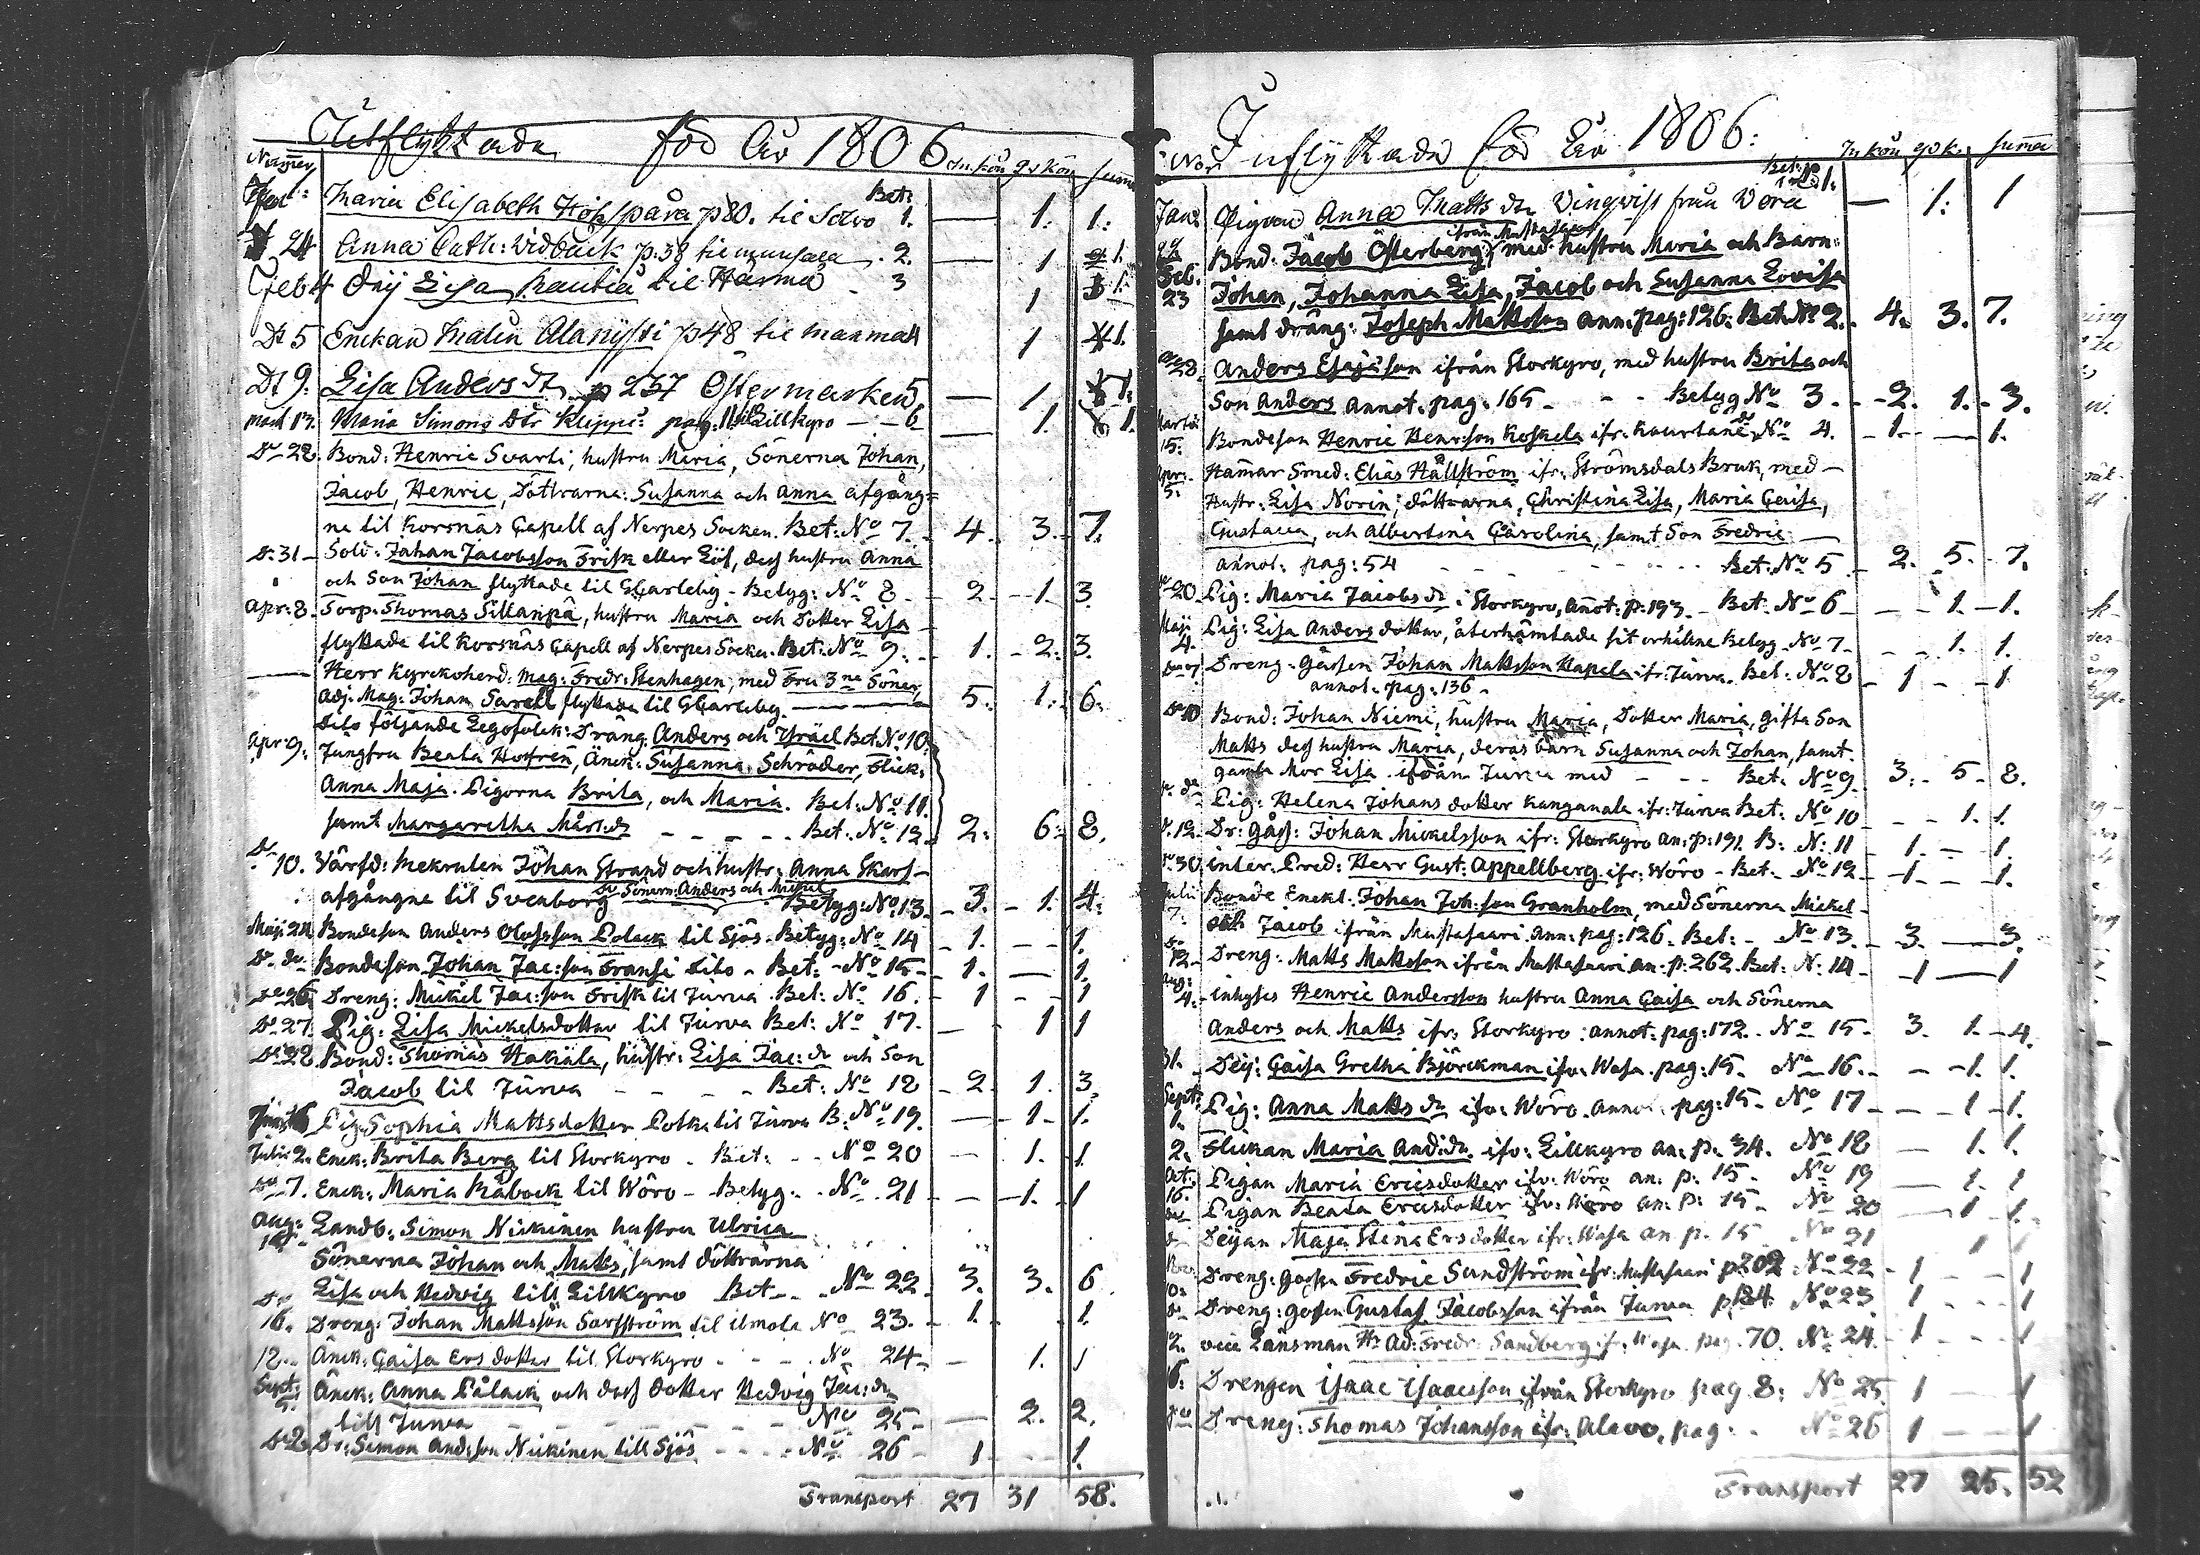 Utflyttade för År 1806
Namn M:kön qv kön Summ
Bet:
Maria Elisabeth p 80. til Solvo 1. — 1. 1.
24 Anna Cath: Widbäck p. 38 til munsala 2. — 1 1.
Feb 4 Dej Lisa Kautia til Härmä - 3 1 1.
Dt 5 Enckan Malin Alanysti p48 til maxma 4 1 1.
Dt 9. Lisa Anders dr p 237 Östermarken 5 — 1 1.
Mart 17. Maria Simons Dtr Klippi pag: Lillkyro — 6 — 1. 1.
Do 22. Bond: Henric Svarti, hustru Maria, Sönerna Johan,
Jacob, Henric, Döttrarna: Susanna och Anna afgång=
ne til Korsnäs Capell af Nerpes Socken. Bet: No 7. - 4. 3. 7.
Do 31 - Sold: Johan Jacobsson Frisk eller Löf, dess hustru Anna
och Son Johan flyttade til GCarleby - Betyg: No 8 - 2 - 1. 3.
Apr: 8. Torp: Thomas Sillanpä, hustru Maria och Dotter Lisa
flyttade til Korsnäs Capell af Nerpes Socken. Bet: No 9. - 1. - 2. 3.
Herr Kyrckoherd: Mag: Fredr: Stenhagen, med Fru 3ne Söner,
Adj: Mag: Johan flyttade til GCarleby — 5. 1. 6.
dito följande Legofolck: Dräng: Anders och Isräel Bet No 10.
Apr: 9: Jungfru Beata Hofrén, Änck: Susanna Schröder, Flick:
Anna Maja. Pigorna Brita, och Maria. Bet: No 11.
samt Margaretha Mårt: dr - - - - Bet: No 12. 2: 6. 8.
Do 10. Värfd: Mekruten Johan Strand och hustr: Anna Skarf
afgångne til Sveaborg Sönern: Anders och Michel Betyg: No 13 - 3. - 1. 4.
Maji 24 Bondeson Anders Olofsson Polack til Sjös. Betyg: No 14 - 1. - - 1.
Do do Bondeson Johan Jac: son Fransi dito - Bet: - No 15 - 1. — 1.
Do 26 Dreng: Mickel Jac: son Frisk til Jurva. Bet: No 16. - 1 - - 1
Do 27. Pig: Lisa Mickelsdotter til Jurva Bet: No 17. - 1 1
Do 28 Bond: Thomas Hakala, hustr: Lisa Jac: dr och Son
Jacob til Jurva - - - Bet: No 18 - 2. 1. 3.
Pig: Sophia Mattsdotter Polka til Jurva B: No 19. — 1 - 1.
Julii 2. Enck: Brita Berg til Storkyro - Bet: - - No 20 — 1. 1
Do 7. Enck: Maria Råback til Wörö - Betyg: - No 21 - - 1. 1
Aug: Landb: Simon Niskinen hustru Ulrica
Sönerna Johan och Matts, samt döttrarna
Lisa och Hedvig till LillKyro Bet - - No 22. 3. 3. 6
Do 16. Dreng: Johan Mattsson til ilmola No 23. - 1. 1.
18 - Änck: Caisa Ers dotter til Storkyro - - - No 24 - — 1. 1
Sept: Änck: Anna Pålack och dess dotter Hedvig Jac: dr
till Jurva - - - No 25 - — 2. 2.
Do 2. Dr: Simon And: son Niskinen till Sjös - - - No 26 - 1 - - 1.
Transport 27 31 58.
Inflyttade för År 1806:
M kön qv k. Summa
Bet:
Jan: Pigan Anna Matts dr Vingvist från Vörå — 1. 1
ifrån Mustasaari
Bond: Jacob Österberg, med hustru Maria och Barn:
Feb. 23 Johan, Johanna Lisa, Jacob och Susanna Lovisa
samt dräng: Joseph Mattsson ann: pag: 126. Bet No 2. - 4. 3. 7.
Do 28. Anders Esajasson ifrån Storkyro, med hustru Brita och
Son Anders annot. pag: 165 - - - Betyg No 3. - 2. 1. - 3.
Martii 15. Bondeson Henric Henr: son Koskela ifr: Kauhane No 4. - 1. - — 1.
Apr: 5. Hammar Smed: Elias Hällström ifr: Strömsdals Bruk, med -
Hustr: Lisa Norin; döttrarna, Christina Lisa, Maria Caisa,
Gustava, och Albertina Carolina, samt Son Fredric -
annot: pag: 54 - - - Bet: No 5. - 2. 5. - 7.
Do 20 Pig: Maria Jacobs dr i Storkyro, Annot: p: 193 - Bet: No 6 - - - 1. - 1.
Maji 4. Pig: Lisa Anders dotter, återhämtade sit erhållne Betyg No 7 - - - 1. 1.
Dreng - Gåssen Johan Mattsson Hapala ifr: Jurva. Bet: No 8
annot: pag: 136 - - 1 - - 1
Do 10 Bond: Johan Niemi, hustru Maria, Dotter Maria, gifta Son
Matts dess hustru Maria, deras barn Susanna och Johan, samt
gamla Mor Lisa ifrån Jurva med - - - Bet: No 9. 3. - 5. - 8.
Do do Pig: Helena Johans dotter Kanganala ifr: Jurva Bet: No 10 - - 1. 1.
D. 12. Dr: gåss: Johan Mickelsson ifr: Storkyro an: p: 191. B: N: 11 - 1. - 1.
Do 30 inter: Pred: Herr Gust: Appellberg ifr: Wörö - Bet: - No 12 - 1. - - 1.
Julii 7. Bonde Enckl: Johan Joh: son Granholm, med Sönerna Mickel
och Jacob ifrån Mustasaari Ann: pag: 126. Bet: - No 13. - 3. — 3.
Do 12. Dreng: Matts Mattsson ifrån Mustasaari an: p: 262. Bet: N: 14 - - 1 — 1
Aug: 4. - inhyses Henric Andersson hustru Anna Caisa och Sönerna
Anders och Matts ifr: Storkyro: annot: pag: 172. - No 15 - 3. 1. - 4.
31. - Deij: Caisa Gretha Björckman ifr: Wasa. pag: 15. No 16. - - - 1. 1.
Sept: 1. Pig: Anna Matts dr ifr: Wörö. Annot pag: 15. No 17 - - - 1 - 1.
2. Flickan Maria And: dr. ifr: Lillkyro an: p. 34. No 18 — 1. 1.
Oct: 16. Pigan Maria Ericsdotter ifr: Wörö an: p. 15. No 19 — 1. 1
do Pigan Beata Ericsdotter ifr: Wörö an: p: 15. No 20 — 1 - 1.
Deijan Maja Stina Ersdotter ifr: Wasa an. p. 15 No 21 1 1
Nov: Dreng: gossen Fredric Sandström ifr: Mustasaari p 202 No 22 - 1 - - - 1
Dreng: gossen Gustaf Jacobsson ifrån Jurva p 134 No 23 1 - - - 1
2. vice Länsman Hr Ad: Fredr: Sandberg ifr: Wasa pag. 70. No 24. - 1 - - - 1
6: Drengen Isaac Isaacsson ifrån Storkyro pag. 8: No 25 1 - - 1
Dreng: Thomas Johansson ifr: Alavo, pag: - No 26 1 — 1
Transport 27 25. 52